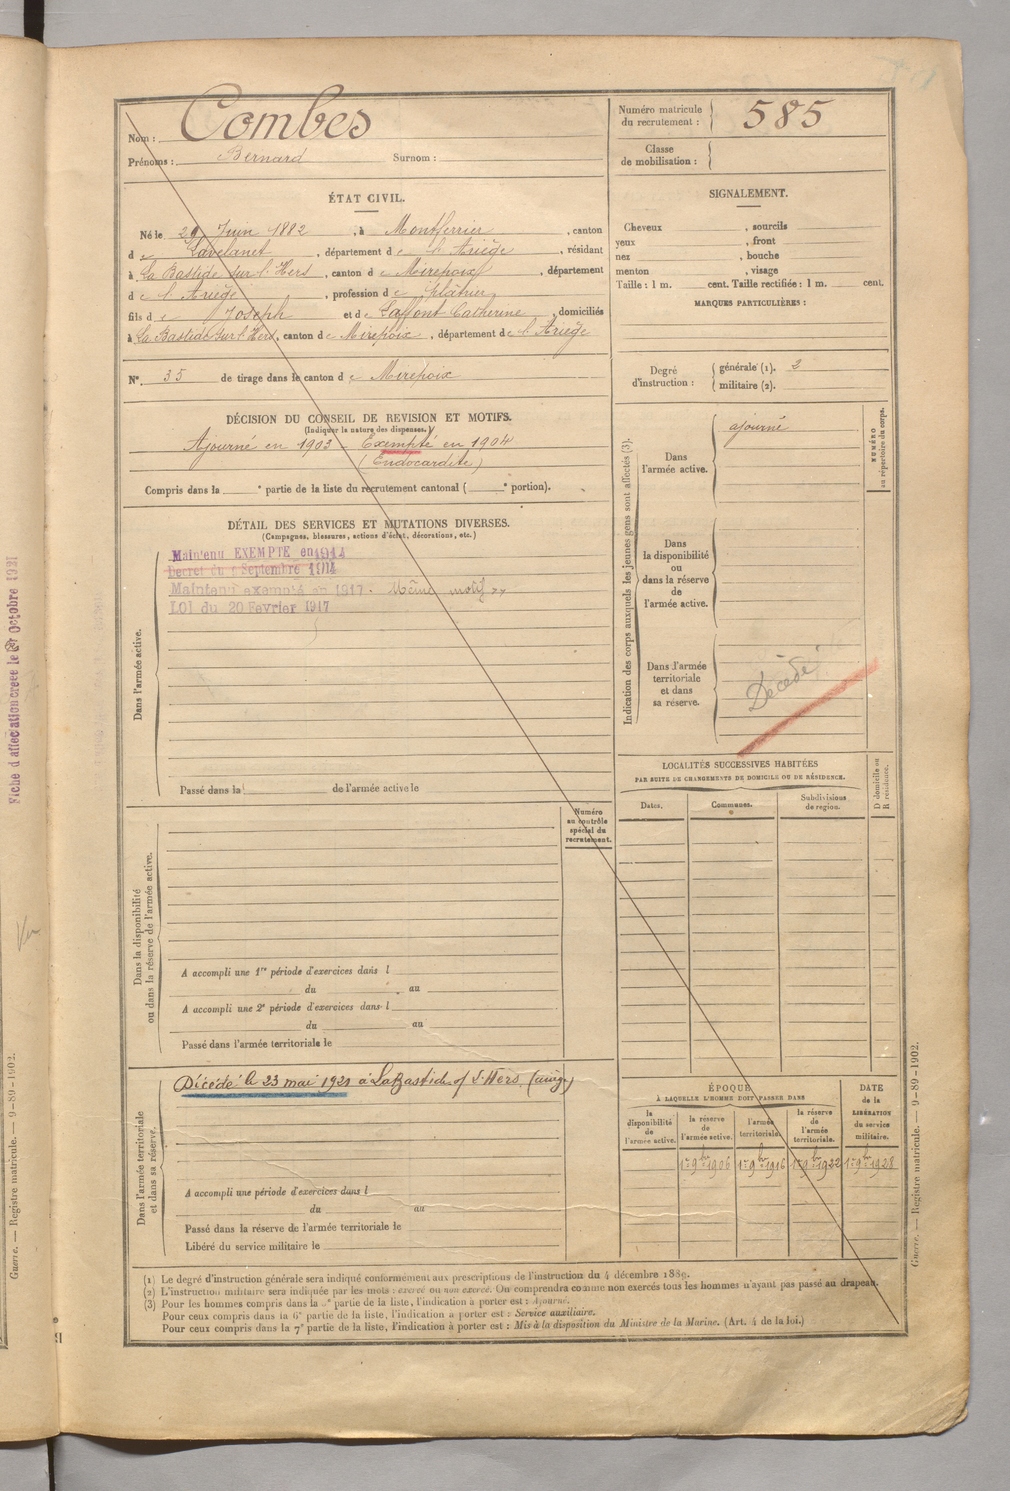 Nom : Combes
Prénoms : Bernard Surnom :
Numéro matricule du recrutement : 585
Classe de mobilisation :
ÉTAT CIVIL.
Né le 29 Juin 1882, à Montferrier, canton
d e Lavelanet, département d e l'Ariège, résidant
à La Bastide sur l'Hers, canton d e Mirepoix, département
d e l'Ariège, profession d e plâtrier
fils d e Joseph et d e Laffont Catherine, domiciliés
à La Bastide sur l'Hers, canton d e Mirepoix, département d e l'Ariège
N° 35 de tirage dans le canton d e Mirepoix
SIGNALEMENT.
Cheveux , sourcils
yeux , front
nez , bouche
menton , visage
Taille : 1 m. cent. Taille rectifiée : 1 m. cent.
MARQUES PARTICULIÈRES :
Degré d'instruction : générale (1). 2
militaire (2).
DÉCISION DU CONSEIL DE REVISION ET MOTIFS.
(Indiquer la nature des dispenses.)
Ajourné en 1903 - Exempté en 1904
(Endocardite)
Compris dans la e partie de la liste du recrutement cantonal ( e portion).
DÉTAIL DES SERVICES ET MUTATIONS DIVERSES.
(Campagnes, blessures, actions d'éclat, décorations, etc.)
Dans l'armée active.
Maintenu EXEMPTE en 1914
Decret du 9 Septembre 1914
Maintenu exempté en 1917. Même motif
LOI du 20 Fevrier 1917
Passé dans la de l'armée active le
Indication des corps auxquels les jeunes gens sont affectés (3).
NUMÉRO au répertoire du corps.
Dans l'armée active.
ajourné
Dans la disponibilité ou dans la réserve de l'armée active.
Dans l'armée territoriale et dans sa réserve.
Décédé
LOCALITÉS SUCCESSIVES HABITÉES
PAR SUITE DE CHANGEMENTS DE DOMICILE OU DE RÉSIDENCE.
Dates. Communes. Subdivisions de région. D domicile ou R résidence.
Numéro au contrôle spécial du recrutement.
Dans la disponibilité ou dans la réserve de l'armée active.
A accompli une 1re période d'exercices dans l
du au
A accompli une 2e période d'exercices dans l
du au
Passé dans l'armée territoriale le
Dans l'armée territoriale et dans sa réserve.
Décédé le 23 mai 1921 à LaBastide s/ l'Hers (ariège)
A accompli une période d'exercices dans l
du au
Passé dans la réserve de l'armée territoriale le
Libéré du service militaire le
ÉPOQUE
À LAQUELLE L'HOMME DOIT PASSER DANS
la disponibilité de l'armée active. la réserve de l'armée active. l'armée territoriale. la réserve de l'armée territoriale.
DATE de la LIBÉRATION du service militaire.
1er 9bre 1906 1er 9bre 1916 1er 9bre 1922 1er 9bre 1928
(1) Le degré d'instruction générale sera indiqué conformément aux prescriptions de l'instruction du 4 décembre 1889.
(2) L'instruction militaire sera indiquée par les mots : exercé ou non exercé. On comprendra comme non exercés tous les hommes n'ayant pas passé au drapeau.
(3) Pour les hommes compris dans la partie de la liste, l'indication à porter est : Ajourné.
Pour ceux compris dans la 6e partie de la liste, l'indication à porter est : Service auxiliaire.
Pour ceux compris dans la 7e partie de la liste, l'indication à porter est : Mis à la disposition du Ministre de la Marine. (Art. 4 de la loi.)
Guerre. — Registre matricule. — 9-89-1902.
Fiche d'affectation créée le Octobre 1921
Guerre. — Registre matricule. — 9-89-1902.